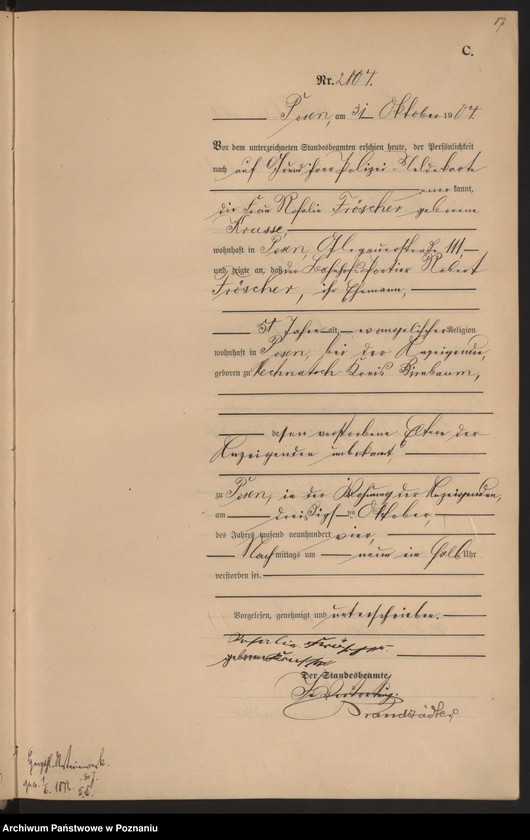 17
C.
Nr. 2104.
Posen, am 31 Oktober 1904.
Vor dem unterzeichneten Standesbeamten erschien heute, der Persönlichkeit
nach auf Grund ihrer Polizei-Meldekarte
kannt,
die Frau Rosalie Fröscher geborene
Krusse,
wohnhaft in Posen, 111,
und zeigte an, daß der Bahnhofsportier Robert
Fröscher, ihr Ehemann,
51 Jahre alt, evangelischer Religion
wohnhaft in Posen, bei der Anzeigenden,
geboren zu Kreis Birnbaum,
dessen verstorbene Eltern der
Anzeigenden unbekannt,
zu Posen, in der Wohnung der Anzeigenden,
am dreißigsten Oktober,
des Jahres tausend neunhundert vier,
Nachmittags um neun ein halb Uhr
verstorben sei.
Vorgelesen, genehmigt und unterschrieben.
Rosalie Fröscher
geborene Krusse
Der Standesbeamte.
In Vertretung.
Brandstädter
Archiwum Państwowe w Poznaniu